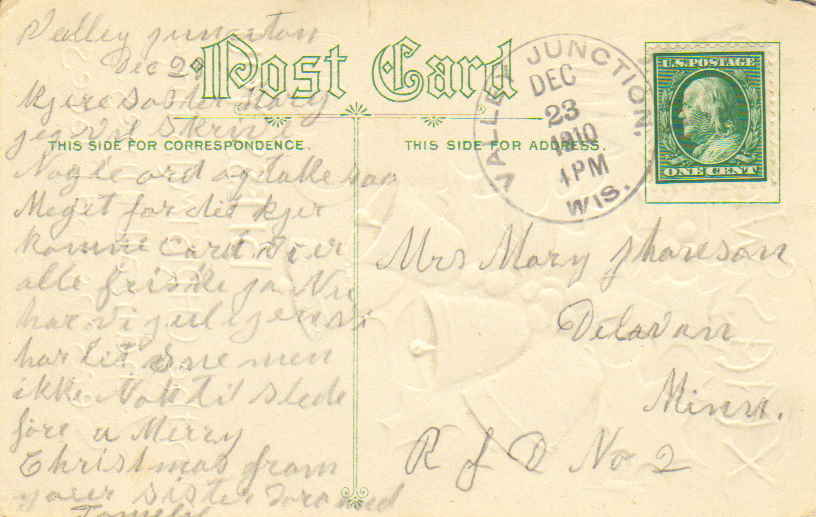 Valley junction
Dec 2
Post Card
THIS SIDE FOR CORRESPONDENCE.
THIS SIDE FOR ADDRESS.
VALLEY JUNCTION, WIS.
DEC
23
1910
1 PM
U.S. POSTAGE
ONE CENT
Kjere Søster Mary
jeg vil Skrive
Nogle ord og takke saa
Meget for dit kjer
komne Card vi er
alle friske ja Nu
har vi jul igen vi
har lit Sne men
ikke Nok til slede
føre a Merry
Christmas from
your Sister and
Family
Mrs Mary
Delavan
Minn.
R f D No 2